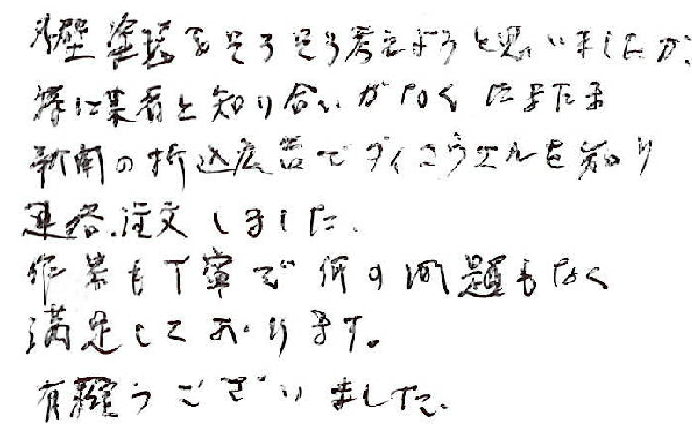 外壁塗装をそろそろ考えようと思いましたが、
特に業者と知り合いがなくたまたま
新聞の折込広告でダイコウエルを知り
連絡、注文しました。
作業も丁寧で何の問題もなく
満足しております。
有難うございました。